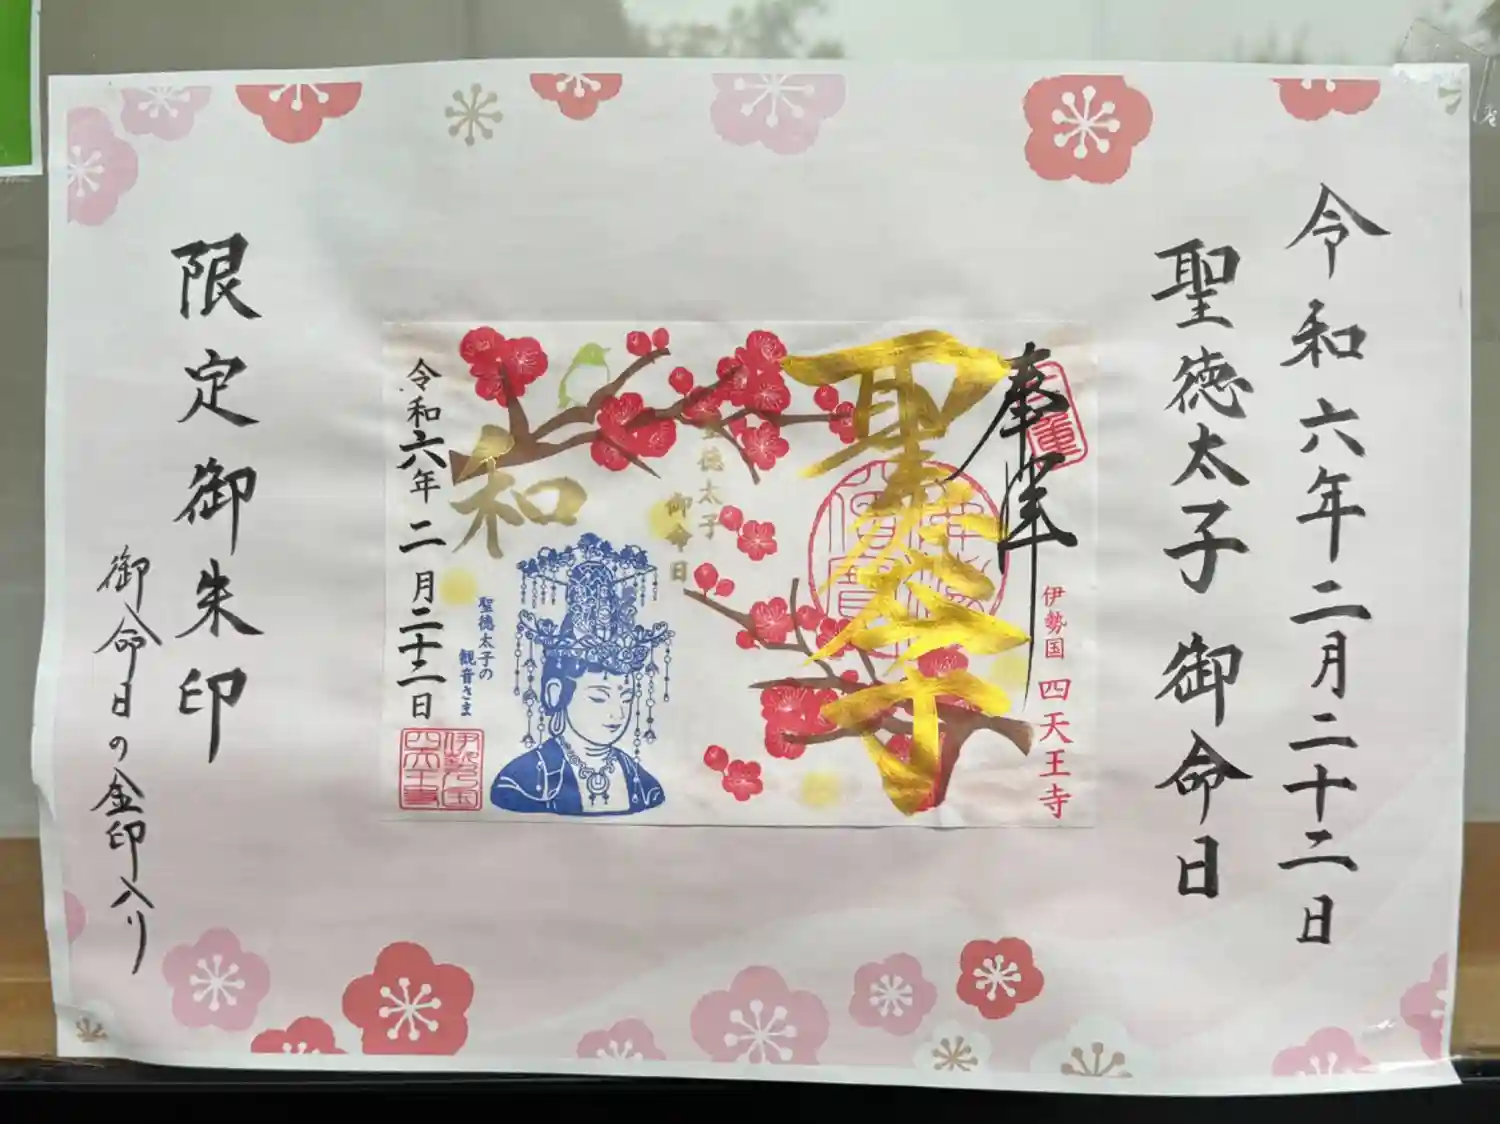 令和六年二月二十二日
聖徳太子 御命日
奉拝
伊勢国 四天王寺
聖徳太子
御命日
和
聖徳太子の
観音さま
令和六年二月二十二日
伊勢国
四天王寺
限定御朱印
御命日の金印入り